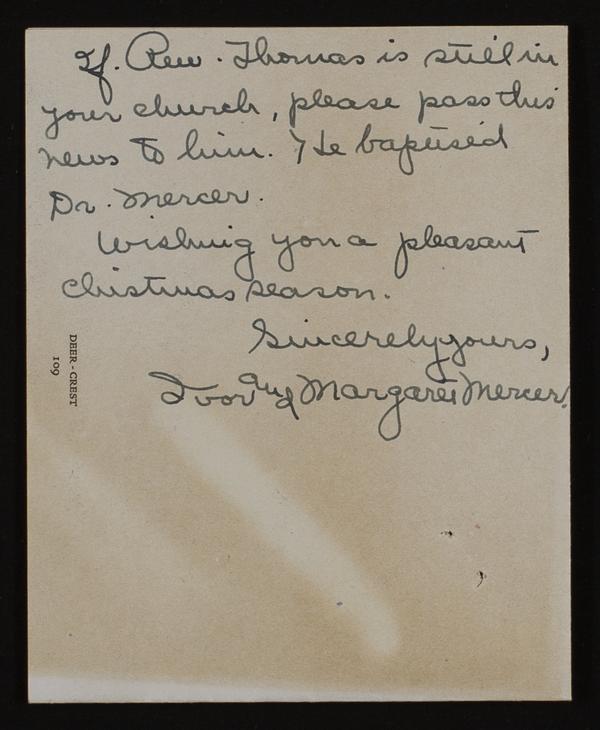 If. Rev. Thomas is still in
your church, please pass this
news to him. He baptised
Dr. Mercer.
Wishing you a pleasant
Christmas season.
Sincerely yours,
Ivor and Margaret Mercer.
DEER - CREST
109